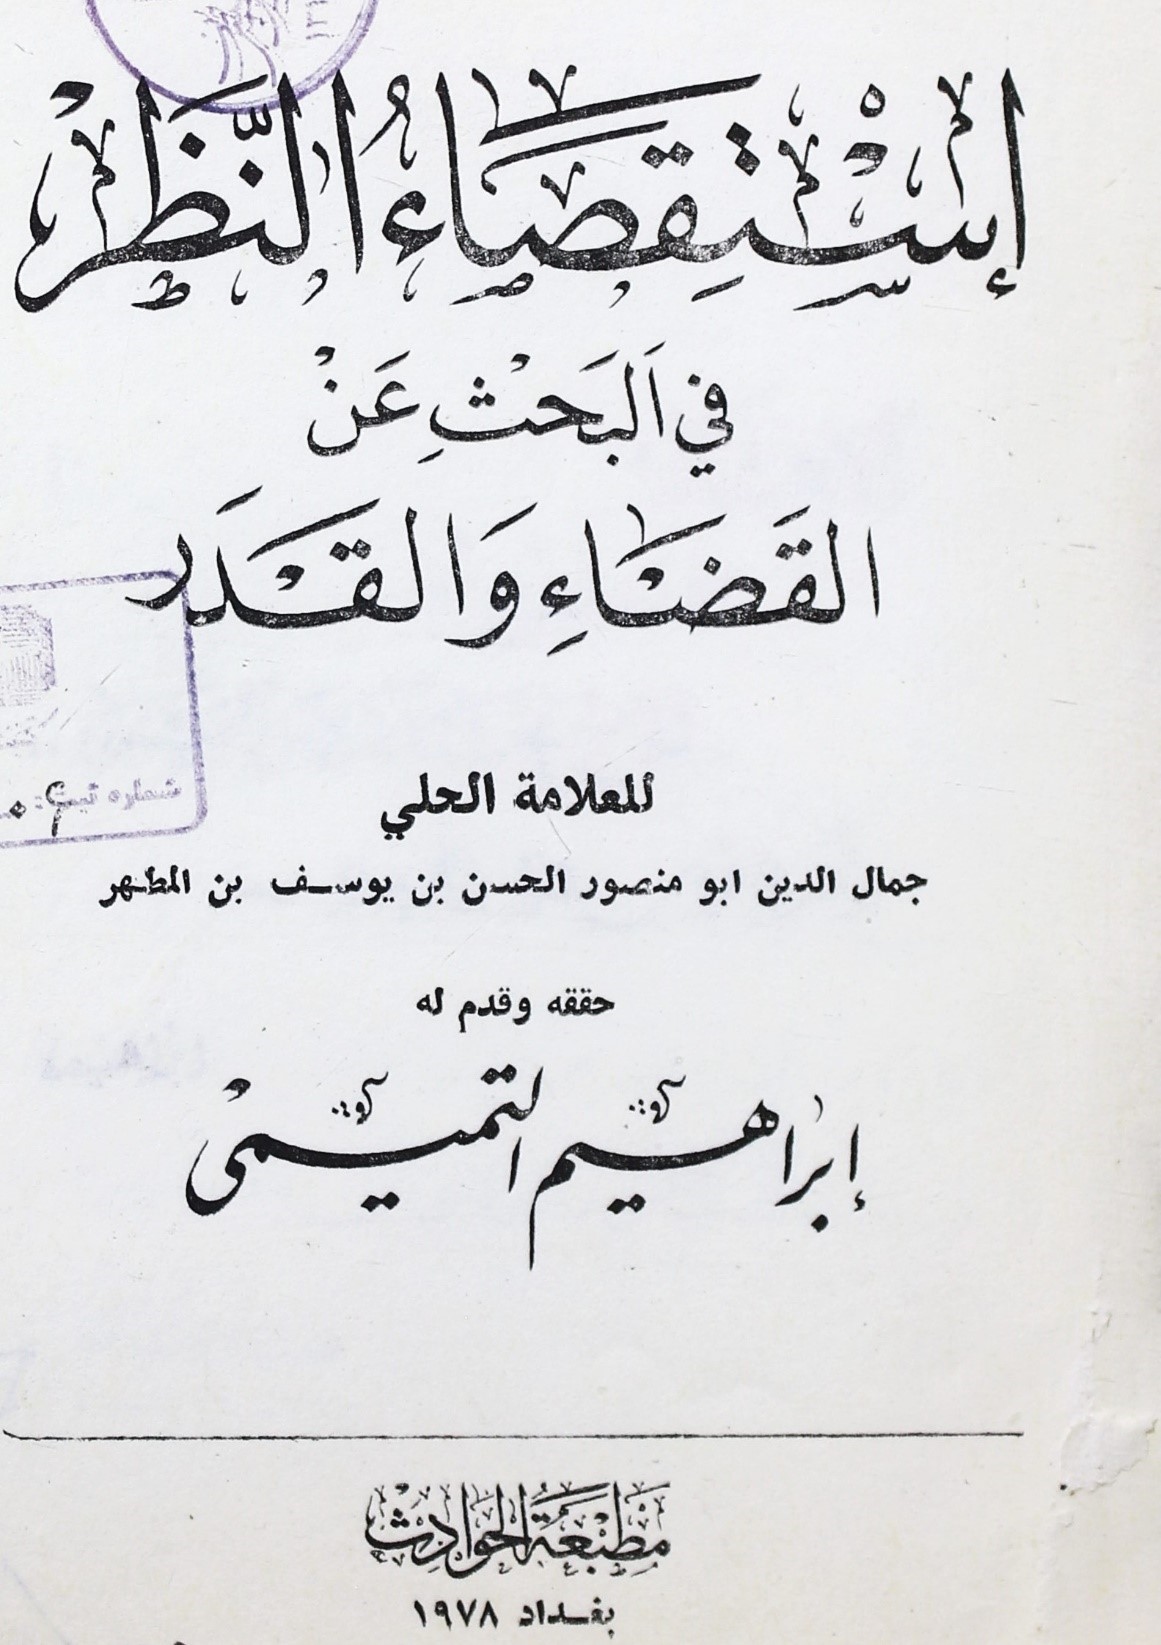 إستقصاء النظر
في البحث عن
القضاء والقدر
للعلامة الحلي
جمال الدين ابو منصور الحسن بن يوسف بن المطهر
حققه وقدم له
إبراهيم التميمى
مطبعة الحوادث
بغداد ١٩٧٨
شماره ثبت: